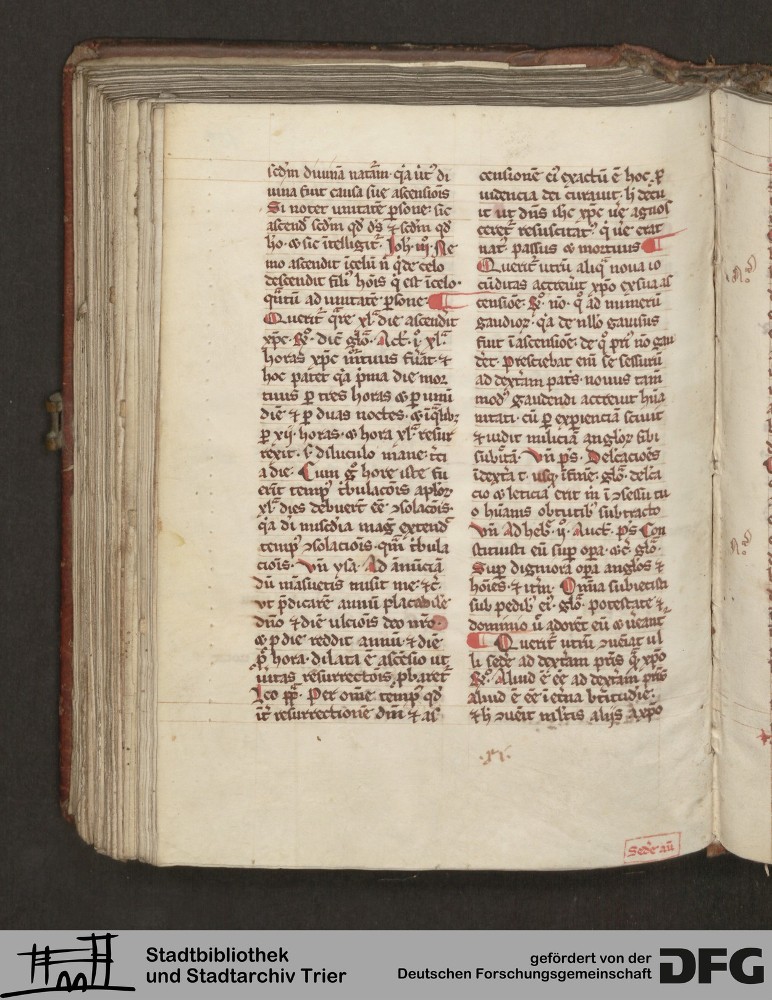 scdm diuinā natām · qͥa ūtꝰ di
uina fuit causa sue ascensiōis
Si notet unitatē ꝑsone · sic
ascend scdm qd dꝰs ⁊ scdm qd
hō · ⁊ sic ītelligitͬ · Joh · iij · Ne
mo ascendit ī celū n̄ qͥ de celo
descendit filiꝰ hōis qͥ est ī celo ·
ad unitatē ꝑsone
Queritͬ qͣre xlͣ die ascendit
xp̄c · Rͦ · die · glō · Act · j · xlͣ
horas xp̄c mortuus fuāt ⁊
hoc patet qͥa pͥma die mor
tuus ꝑ tres horas ⁊ ꝑ unū
diē ⁊ ꝑ duas noctes · ⁊
ꝑ xij · horas · ⁊ hora xlͣ resur
rexit · s· diluculo mane · t̄ci
a die · Cum gͦ hore iste fu
erūt tempꝰ tͥbulacōis aplōꝝ
xlͣ dies debuerūt eē ꝯsolacōis ·
qͥa dī misc̄dia mag̅ extend
tempꝰ ꝯsolaciōis · qͣm tͥbula
ciōis · Vn̄ ysa · Ad annūciā
dū māsuetis misit me · ⁊c̄ ·
vt p̄dicarē annū placabilē
dn̄o ⁊ diē ulciōis deo nrō
⁊ ꝓ die reddit annū ⁊ diē
ꝓ hora · dilata ē ascēsio ut
ūitas resurrectōis ꝓbaretͬ
Leo pp̄ · Per om̄e tempꝰ qd
īt̄ resurrectionē dn̄i ⁊ as
censionē eiꝰ exactū ē hoc · ꝓ
uidencia dei curauit · h̄ decu
it ut dn̄s ihc xp̄c ue agnos
ceretͬ resuscitatꝰ · qͥ ue erat
natꝰ passus ⁊ mortuus
Queritͬ utrū aliqͣ noua io
cūditas accreuit xp̄o ex sua as
censiōe · Rͦ · nō · qͦ ad numerū
gaudioꝝ · qͥa de nllō gauisus
fuit ī ascensiōe · de qͦ priꝰ nō gau
deret · presciebat eni se sessurū
ad dext̄am patͥs · nouus tam̄
modꝰ gaudendi accreuit hūa
nitati · cū ꝑ expienciā sciuit
⁊ uidit miliciā angloꝝ sibi
subiectā · Vn̄ ps · Delcacioēs
ī dext̄a t · usqͥ ī finē · glō · delca
cio ⁊ leticia erit m̄ ī ꝯsessu tu
o hūanis obtutibꝰ subtracto
Vn̄ Ad heb̄ · ij · Auct̄ · ps Con
stituisti eū sup opa · ⁊c̄ · glō ·
Sup digniora opa anglōs ⁊
hoīes · ⁊ itm̄ · Om̄ia subiecisti
sub pedibꝰ eiꝰ · glō · potestate ⁊
dominio ū adoret eū ⁊ ueant
Queritͬ utrū ꝯueniat ul
li sedē ad dext̄am prīs qͣ xp̄o
Rͦ · Aliud ē eē ad dext̄am prīs
Aliud ē eē ī et̄na btītudīe ·
⁊ h̄ ꝯuenit mltīs alijs a xp̄o
Sede au
Stadtbibliothek
und Stadtarchiv Trier
gefördert von der
Deutschen Forschungsgemeinschaft
DFG